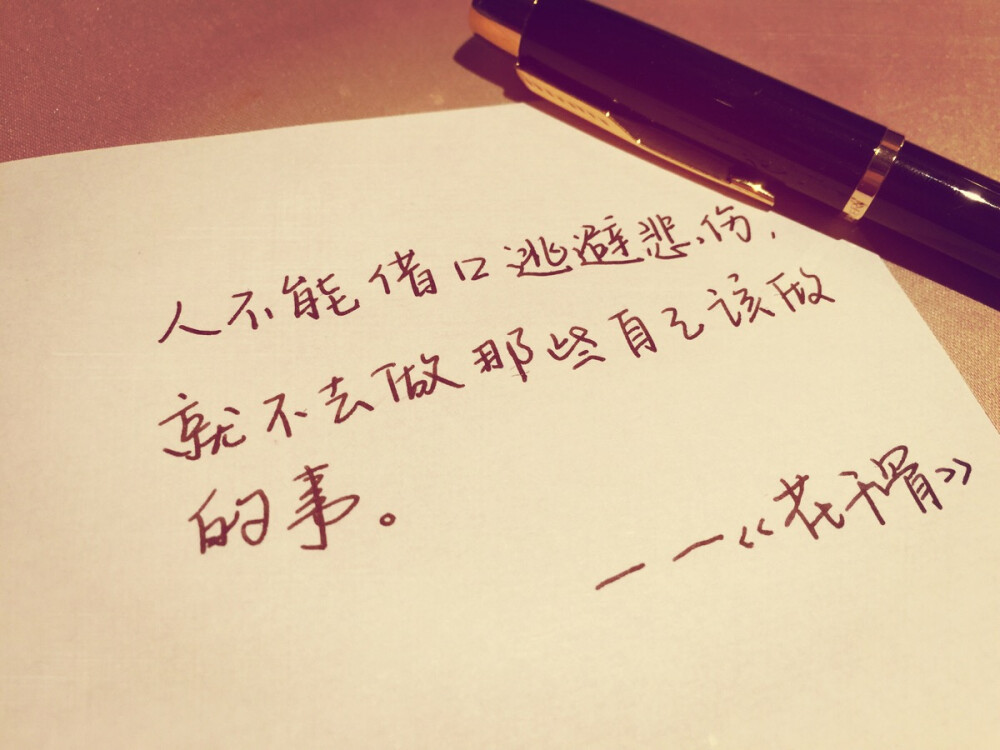 人不能借口逃避悲伤，
就不去做那些自己该做
的事。
——《花千骨》